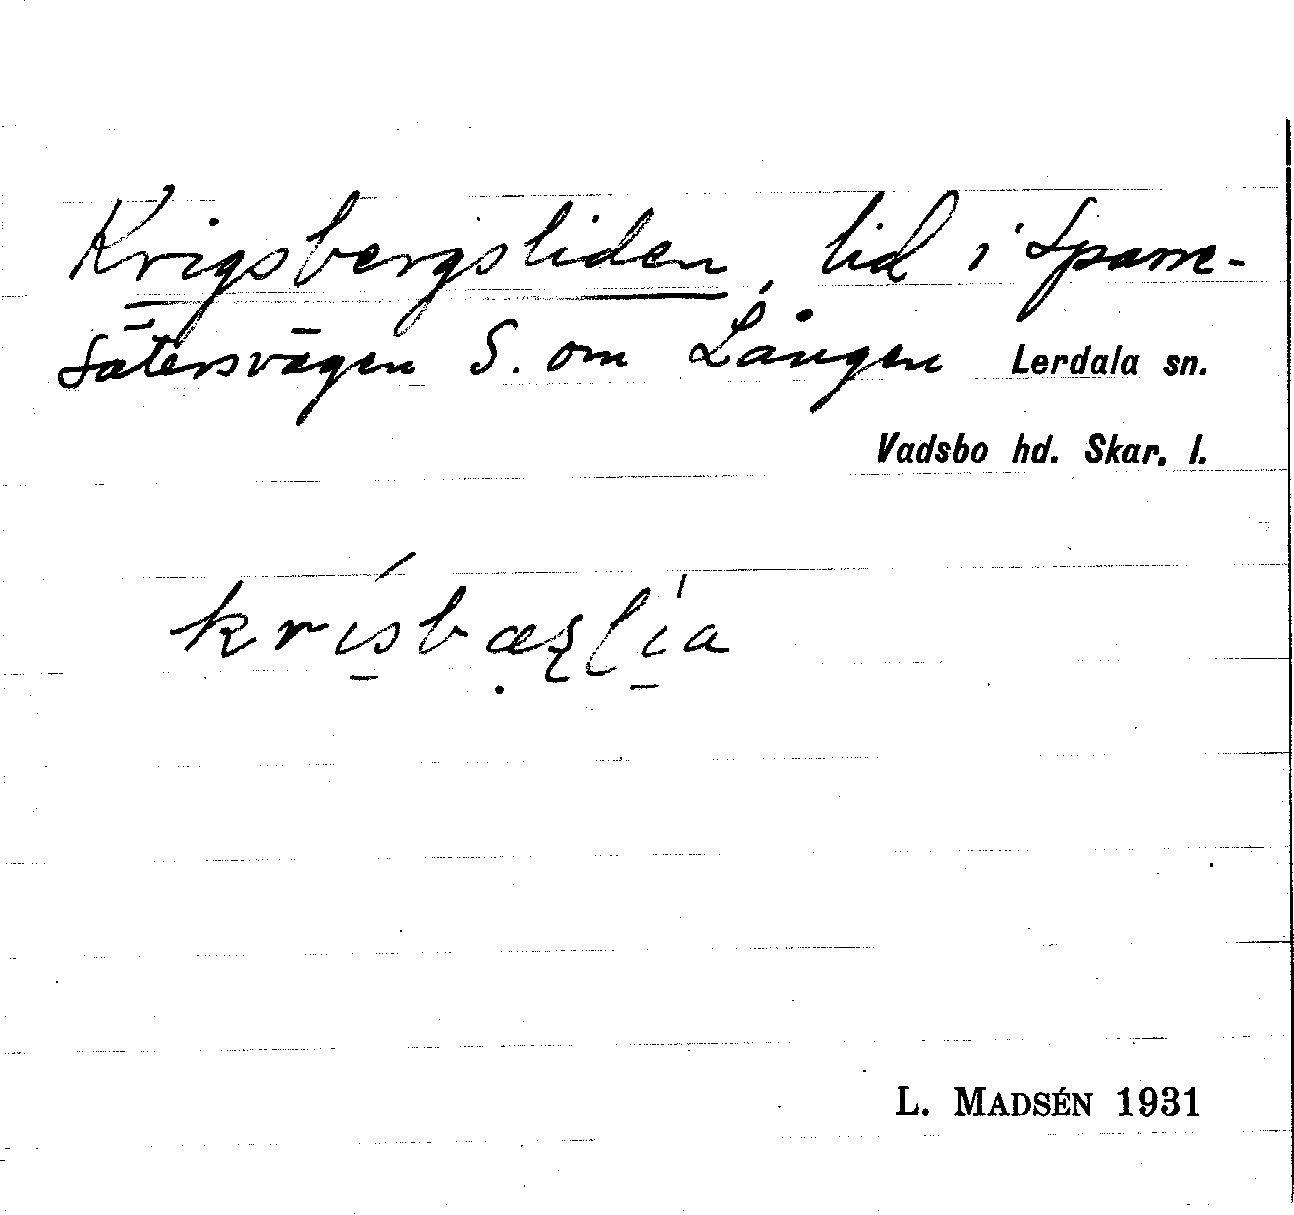 Krigsbergsliden, lid i Sparre-
sätersvägen S. om Lången Lerdala sn.
Vadsbo hd. Skar. l.
L. MADSÉN 1931